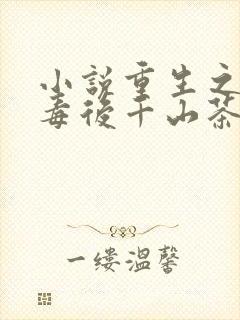 小説重生之
毒後千山茶
一缕温馨